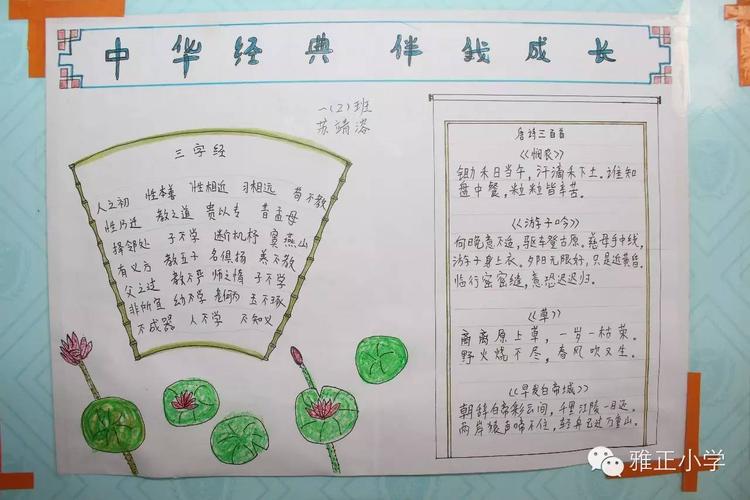 中华经典 伴我成长
一(2)班
苏靖
三字经
人之初 性本善 性相近 习相远 苟不教
性乃迁 教之道 贵以专 昔孟母
择邻处 子不学 断机杼 窦燕山
有义方 教五子 名俱扬 养不教
父之过 教不严 师之惰 子不学
非所宜 幼不学 老何为 玉不琢
不成器 人不学 不知义
唐诗三百首
《悯农》
锄禾日当午，汗滴禾下土。谁知
盘中餐，粒粒皆辛苦。
《游子吟》
向晚意不适，驱车登古原。慈母手中线，
游子身上衣。夕阳无限好，只是近黄昏。
临行密密缝，意恐迟迟归。
《草》
离离原上草，一岁一枯荣。
野火烧不尽，春风吹又生。
《早发白帝城》
朝辞白帝彩云间，千里江陵一日还。
两岸猿声啼不住，轻舟已过万重山。
雅正小学